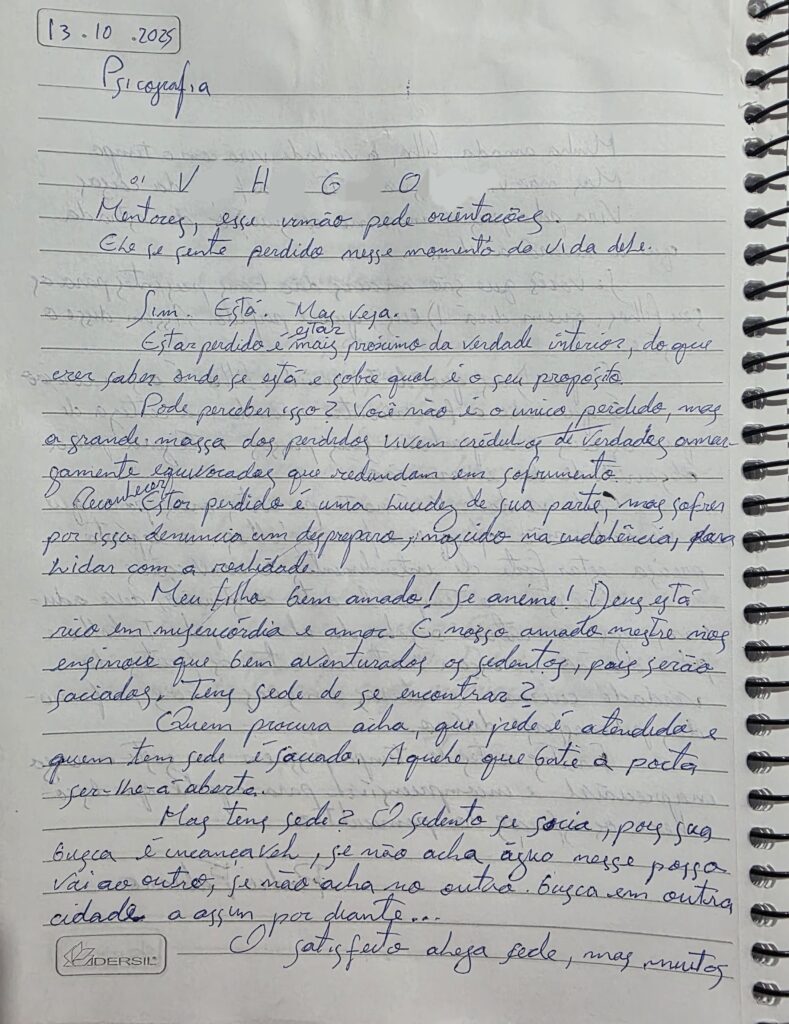 13.10.2025
Psicografia
01 V H G O
Mentores, esse irmão pede orientações.
Ele se sente perdido nesse momento da vida dele.
Sim. Está. Mas veja.
estar
Estar perdido é mais próximo da verdade interior, do que
crer saber onde se está e sobre qual é o seu propósito.
Pode perceber isso? Você não é o unico perdido, mas
a grande massa dos perdidos vivem crédulos de verdades amar-
gamente equivocadas que redundam em sofrimento.
Reconhecer
Estar perdido é uma lucidez de sua parte, mas sofrer
por isso denuncia um despreparo, nascido na indolência, para
lidar com a realidade.
Meu filho bem amado! Se anime! Deus está
rico em misericórdia e amor. E nosso amado mestre nos
ensinou que bem aventurados os sedentos, pois serão
saciados. Tens sede de se encontrar?
Quem procura acha, que pede é atendido e
quem tem sede é saciado. Aquele que bate a porta
ser-lhe-á aberta.
Mas tens sede? O sedento se sacia, pois sua
busca é incansavel, se não acha água nesse posso
vai ao outro, se não acha no outro busca em outra
cidade a assim por diante...
O satisfeito alega sede, mas muitos
ADERSIL